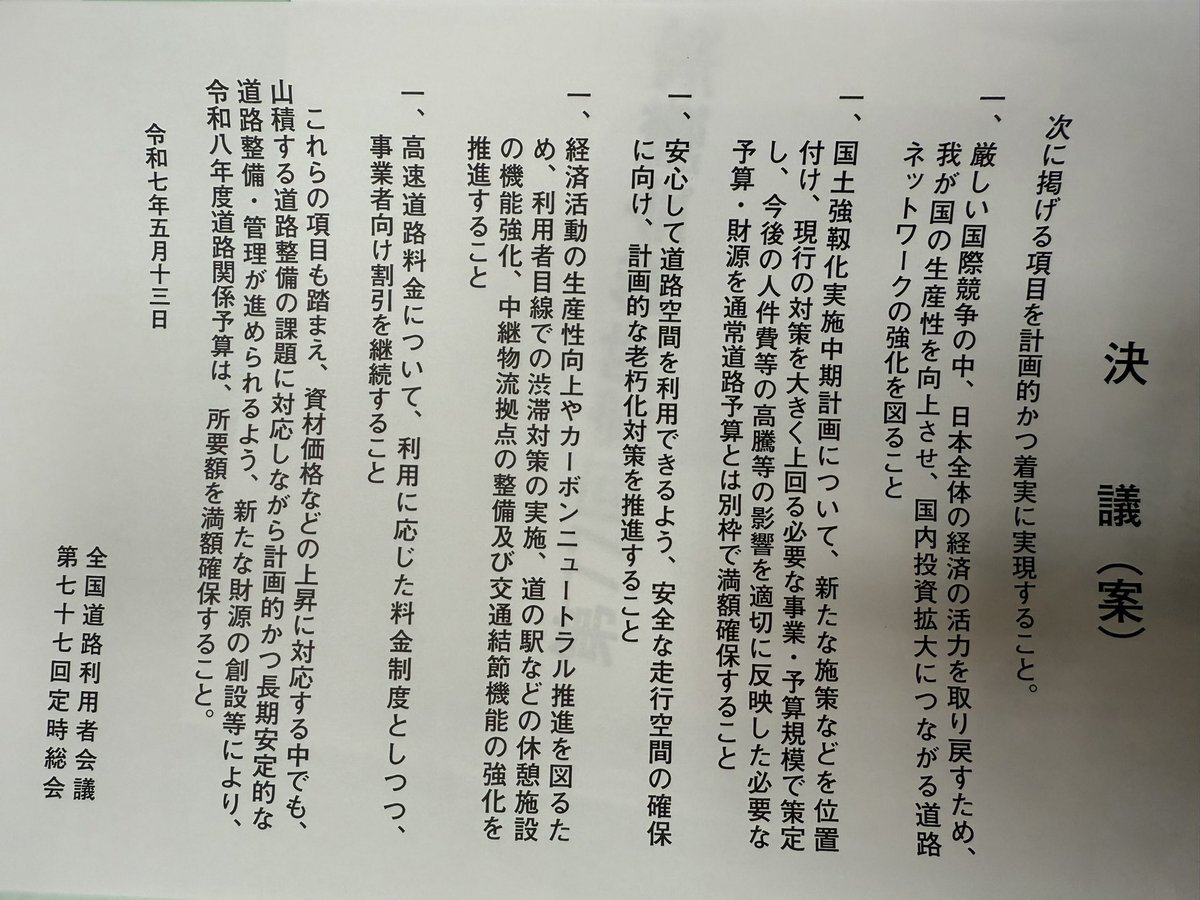 決議(案)
次に掲げる項目を計画的かつ着実に実現すること。
一、厳しい国際競争の中、日本全体の経済の活力を取り戻すため、
我が国の生産性を向上させ、国内投資拡大につながる道路
ネットワークの強化を図ること
一、国土強靱化実施中期計画について、新たな施策などを位置
付け、現行の対策を大きく上回る必要な事業・予算規模で策定
し、今後の人件費等の高騰等の影響を適切に反映した必要な
予算・財源を通常道路予算とは別枠で満額確保すること
一、安心して道路空間を利用できるよう、安全な走行空間の確保
に向け、計画的な老朽化対策を推進すること
一、経済活動の生産性向上やカーボンニュートラル推進を図るた
め、利用者目線での渋滞対策の実施、道の駅などの休憩施設
の機能強化、中継物流拠点の整備及び交通結節機能の強化を
推進すること
一、高速道路料金について、利用に応じた料金制度としつつ、
事業者向け割引を継続すること
これらの項目も踏まえ、資材価格などの上昇に対応する中でも、
山積する道路整備の課題に対応しながら計画的かつ長期安定的な
道路整備・管理が進められるよう、新たな財源の創設等により、
令和八年度道路関係予算は、所要額を満額確保すること。
令和七年五月十三日
全国道路利用者会議
第七十七回定時総会